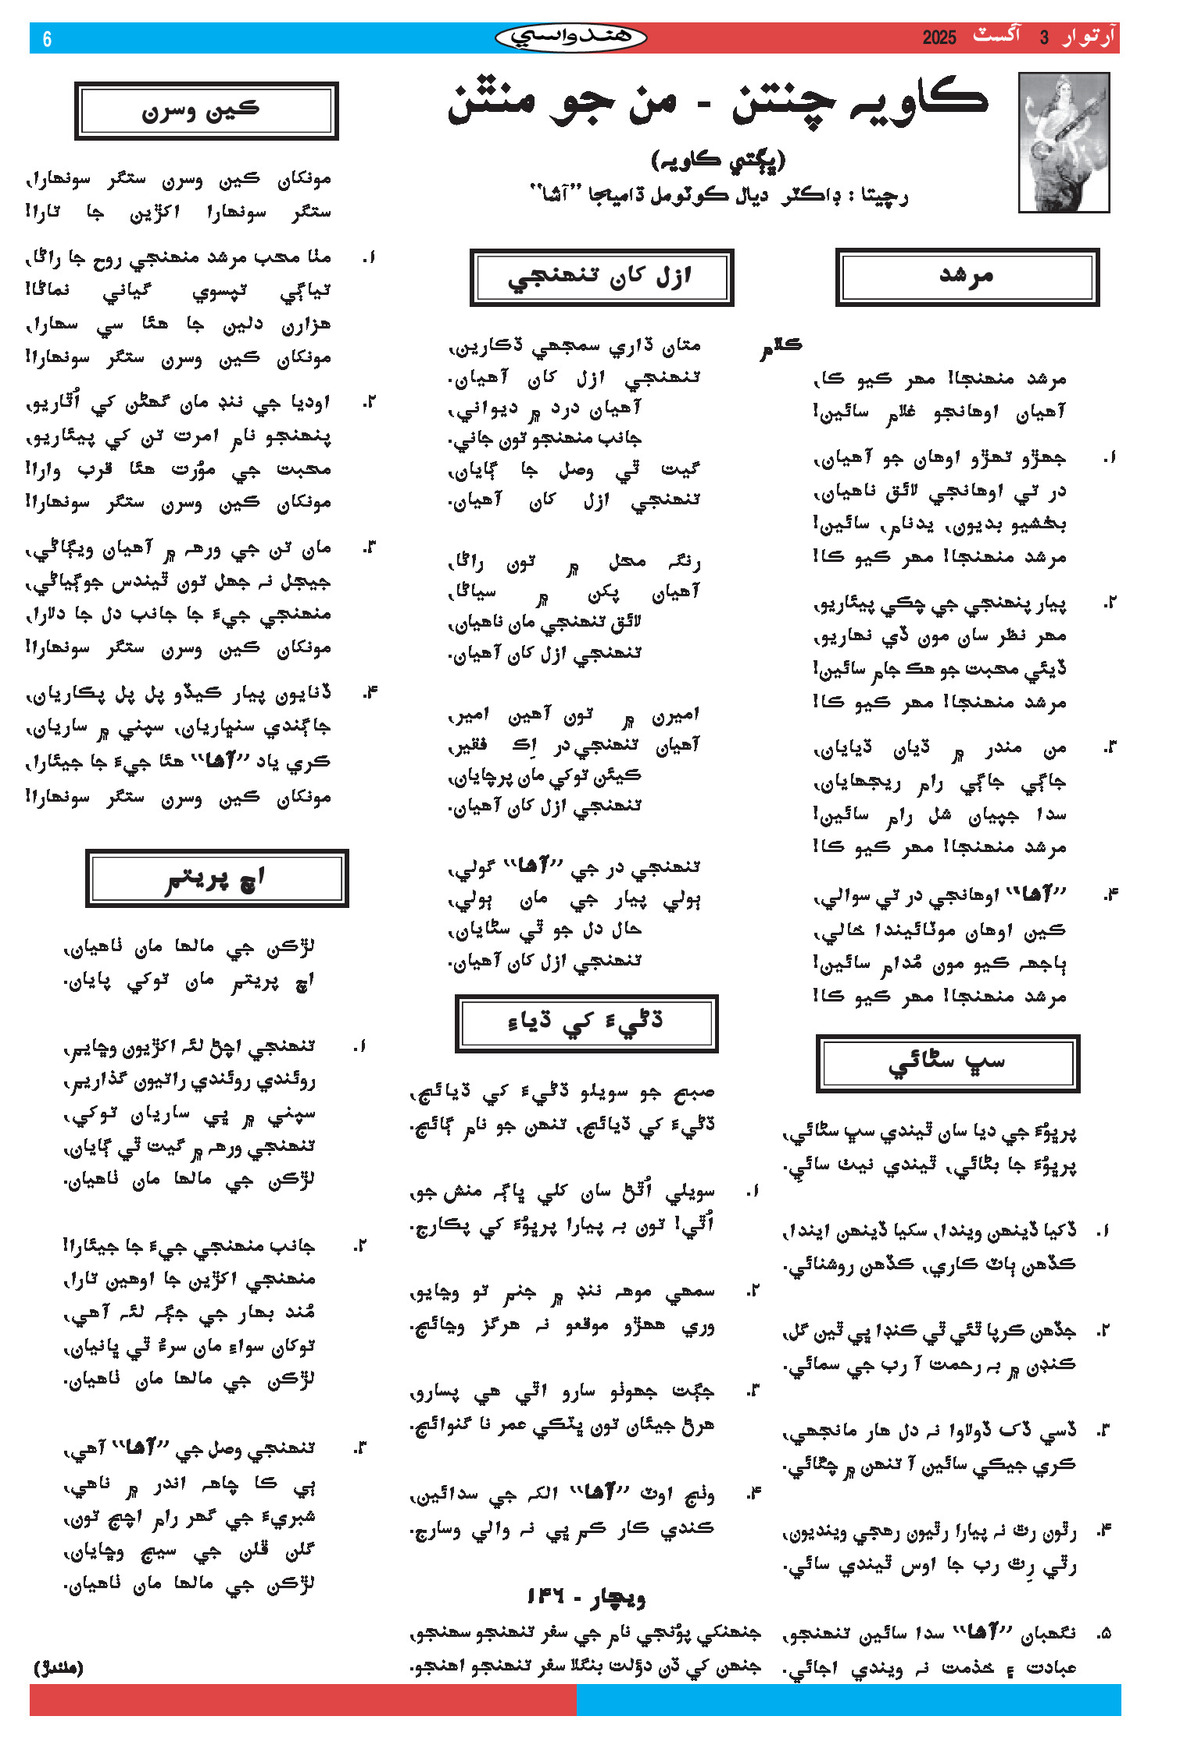 آرتوار 3 آگسٽ 2025
هندواسي
6
ڪاويہ چنتن - من جو منٿن
(ڀڳتي ڪاويہ)
رچيتا : ڊاڪٽر ديال ڪوٽومل ڌاميجا ”آشا“
مرشد
ڪلام
مرشد منھنجا! مھر ڪيو ڪا،
آھيان اوھانجو غلام سائين!
۱. جھڙو تھڙو اوھان جو آھيان،
در تي اوھانجي لائق ناھيان،
بخشيو بديون، بدنام، سائين!
مرشد منھنجا! مھر ڪيو ڪا!
۲. پيار پنھنجي جي چڪي پيئاريو،
مھر نظر سان مون ڏي نھاريو،
ڏيئي محبت جو ھڪ جام سائين!
مرشد منھنجا! مھر ڪيو ڪا!
۳. من مندر ۾ ڌيان ڌيايان،
جاڳي جاڳي رام ريجھايان،
سدا جپيان شل رام سائين!
مرشد منھنجا! مھر ڪيو ڪا!
۴. ”آشا“ اوھانجي در تي سوالي،
ڪين اوھان موٽائيندا خالي،
ٻاجھہ ڪيو مون مُدام سائين!
مرشد منھنجا! مھر ڪيو ڪا!
سڀ سڻائي
پرڀوُءَ جي ديا سان ٿيندي سڀ سڻائي،
پرڀوُءَ جا بڻائي، ٿيندي نيٺ سائي.
۱. ڏکيا ڏينھن ويندا، سکيا ڏينھن ايندا،
ڪڏھن ٻاٽ ڪاري، ڪڏھن روشنائي.
۲. جڏھن ڪرپا ٿئي ٿي ڪنڊا ڀي ٿين گل،
ڪنڊن ۾ بہ رحمت آ رب جي سمائي.
۳. ڏسي ڏک ڏولاوا نہ دل ھار مانجھي،
ڪري جيڪي سائين آ تنھن ۾ چڱائي.
۴. رٿون رٿ نہ پيارا رٿيون رھجي وينديون،
رٿي رِٿ رب جا اوس ٿيندي سائي.
۵. نگھبان ”آشا“ سدا سائين تنھنجو،
عبادت ۽ خذمت نہ ويندي اجائي.
ازل کان تنھنجي
متان ڌاري سمجھي ڌڪارين،
تنھنجي ازل کان آھيان.
آھيان درد ۾ ديواني،
جانب منھنجو تون جاني.
گيت ٿي وصل جا ڳايان،
تنھنجي ازل کان آھيان.
رنگہ محل ۾ تون راڻا،
آھيان پکن ۾ سياڻا،
لائق تنھنجي مان ناھيان،
تنھنجي ازل کان آھيان.
اميرن ۾ تون آھين امير،
آھيان تنھنجي در اِڪ فقير،
ڪيئن توکي مان پرچايان،
تنھنجي ازل کان آھيان.
تنھنجي در جي ”آشا“ گولي،
ٻولي پيار جي مان ٻولي،
حال دل جو ٿي سڻايان،
تنھنجي ازل کان آھيان.
ڌڻيءَ کي ڌياءِ
صبح جو سويلو ڌڻيءَ کي ڌيائج،
ڌڻيءَ کي ڌيائج، تنھن جو نام ڳائج.
۱. سويلي اُٿڻ سان کلي ڀاڳہ منش جو،
اُٿي! تون بہ پيارا پرڀوُءَ کي پڪارج.
۲. سمھي موھہ ننڊ ۾ جنم ٿو وڃايو،
وري ھھڙو موقعو نہ ھرگز وڃائج.
۳. جڳت جھوٺو سارو اٿي ھي پسارو،
ھرڻ جيئان تون ڀٽڪي عمر نا گنوائج.
۴. وٺج اوٽ ”آشا“ الکہ جي سدائين،
ڪندي ڪار ڪم ڀي نہ والي وسارج.
ويچار - ۱۴۶
جنھنکي پوُنجي نام جي سڦر تنھنجو سھنجو،
جنھن کي ڌن دؤلت بنگلا سڦر تنھنجو اھنجو.
ڪين وسرن
مونکان ڪين وسرن ستگر سونھارا،
ستگر سونھارا اکڙين جا تارا!
۱. مٺا محب مرشد منھنجي روح جا راڻا،
تياڳي تپسوي گياني نماڻا!
ھزارن دلين جا ھئا سي سھارا،
مونکان ڪين وسرن ستگر سونھارا!
۲. اوديا جي ننڊ مان گھڻن کي اُٿاريو،
پنھنجو نام امرت تن کي پيئاريو،
محبت جي موُرت ھئا قرب وارا!
مونکان ڪين وسرن ستگر سونھارا!
۳. مان تن جي ورھہ ۾ آھيان ويڳاڻي،
جيجل نہ جھل تون ٿيندس جوڳياڻي،
منھنجي جيءَ جا جانب دل جا دلارا،
مونکان ڪين وسرن ستگر سونھارا!
۴. ڏنايون پيار ڪيڏو پل پل پڪاريان،
جاڳندي سنڀاريان، سپني ۾ ساريان،
ڪري ياد ”آشا“ ھئا جيءَ جا جيئارا،
مونکان ڪين وسرن ستگر سونھارا!
اچ پريتم
لڙڪن جي مالھا مان ٺاھيان،
اچ پريتم مان توکي پايان.
۱. تنھنجي اچڻ لئہ اکڙيون وڇايم،
روئندي روئندي راتيون گذاريم،
سپني ۾ ڀي ساريان توکي،
تنھنجي ورھہ ۾ گيت ٿي ڳايان،
لڙڪن جي مالھا مان ٺاھيان.
۲. جانب منھنجي جيءَ جا جيئارا!
منھنجي اکڙين جا اوھين تارا،
مُند بھار جي جڳہ لئہ آھي،
توکان سواءِ مان سرءُ ٿي ڀانيان،
لڙڪن جي مالھا مان ٺاھيان.
۳. تنھنجي وصل جي ”آشا“ آھي،
ٻي ڪا چاھہ اندر ۾ ناھي،
شبريءَ جي گھر رام اچج تون،
گلن ڦلن جي سيج وڇايان،
لڙڪن جي مالھا مان ٺاھيان.
(ھلندڙ)